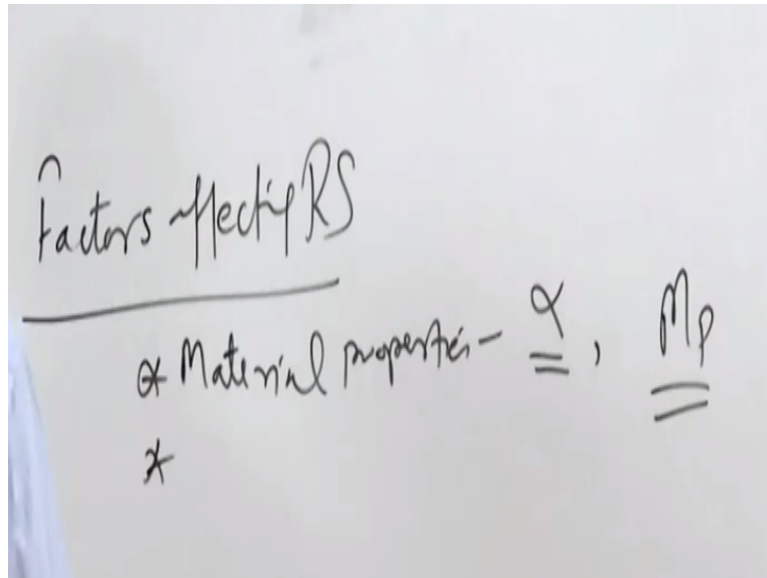 Factors affecting RS
* Material properties - α, Mp
*